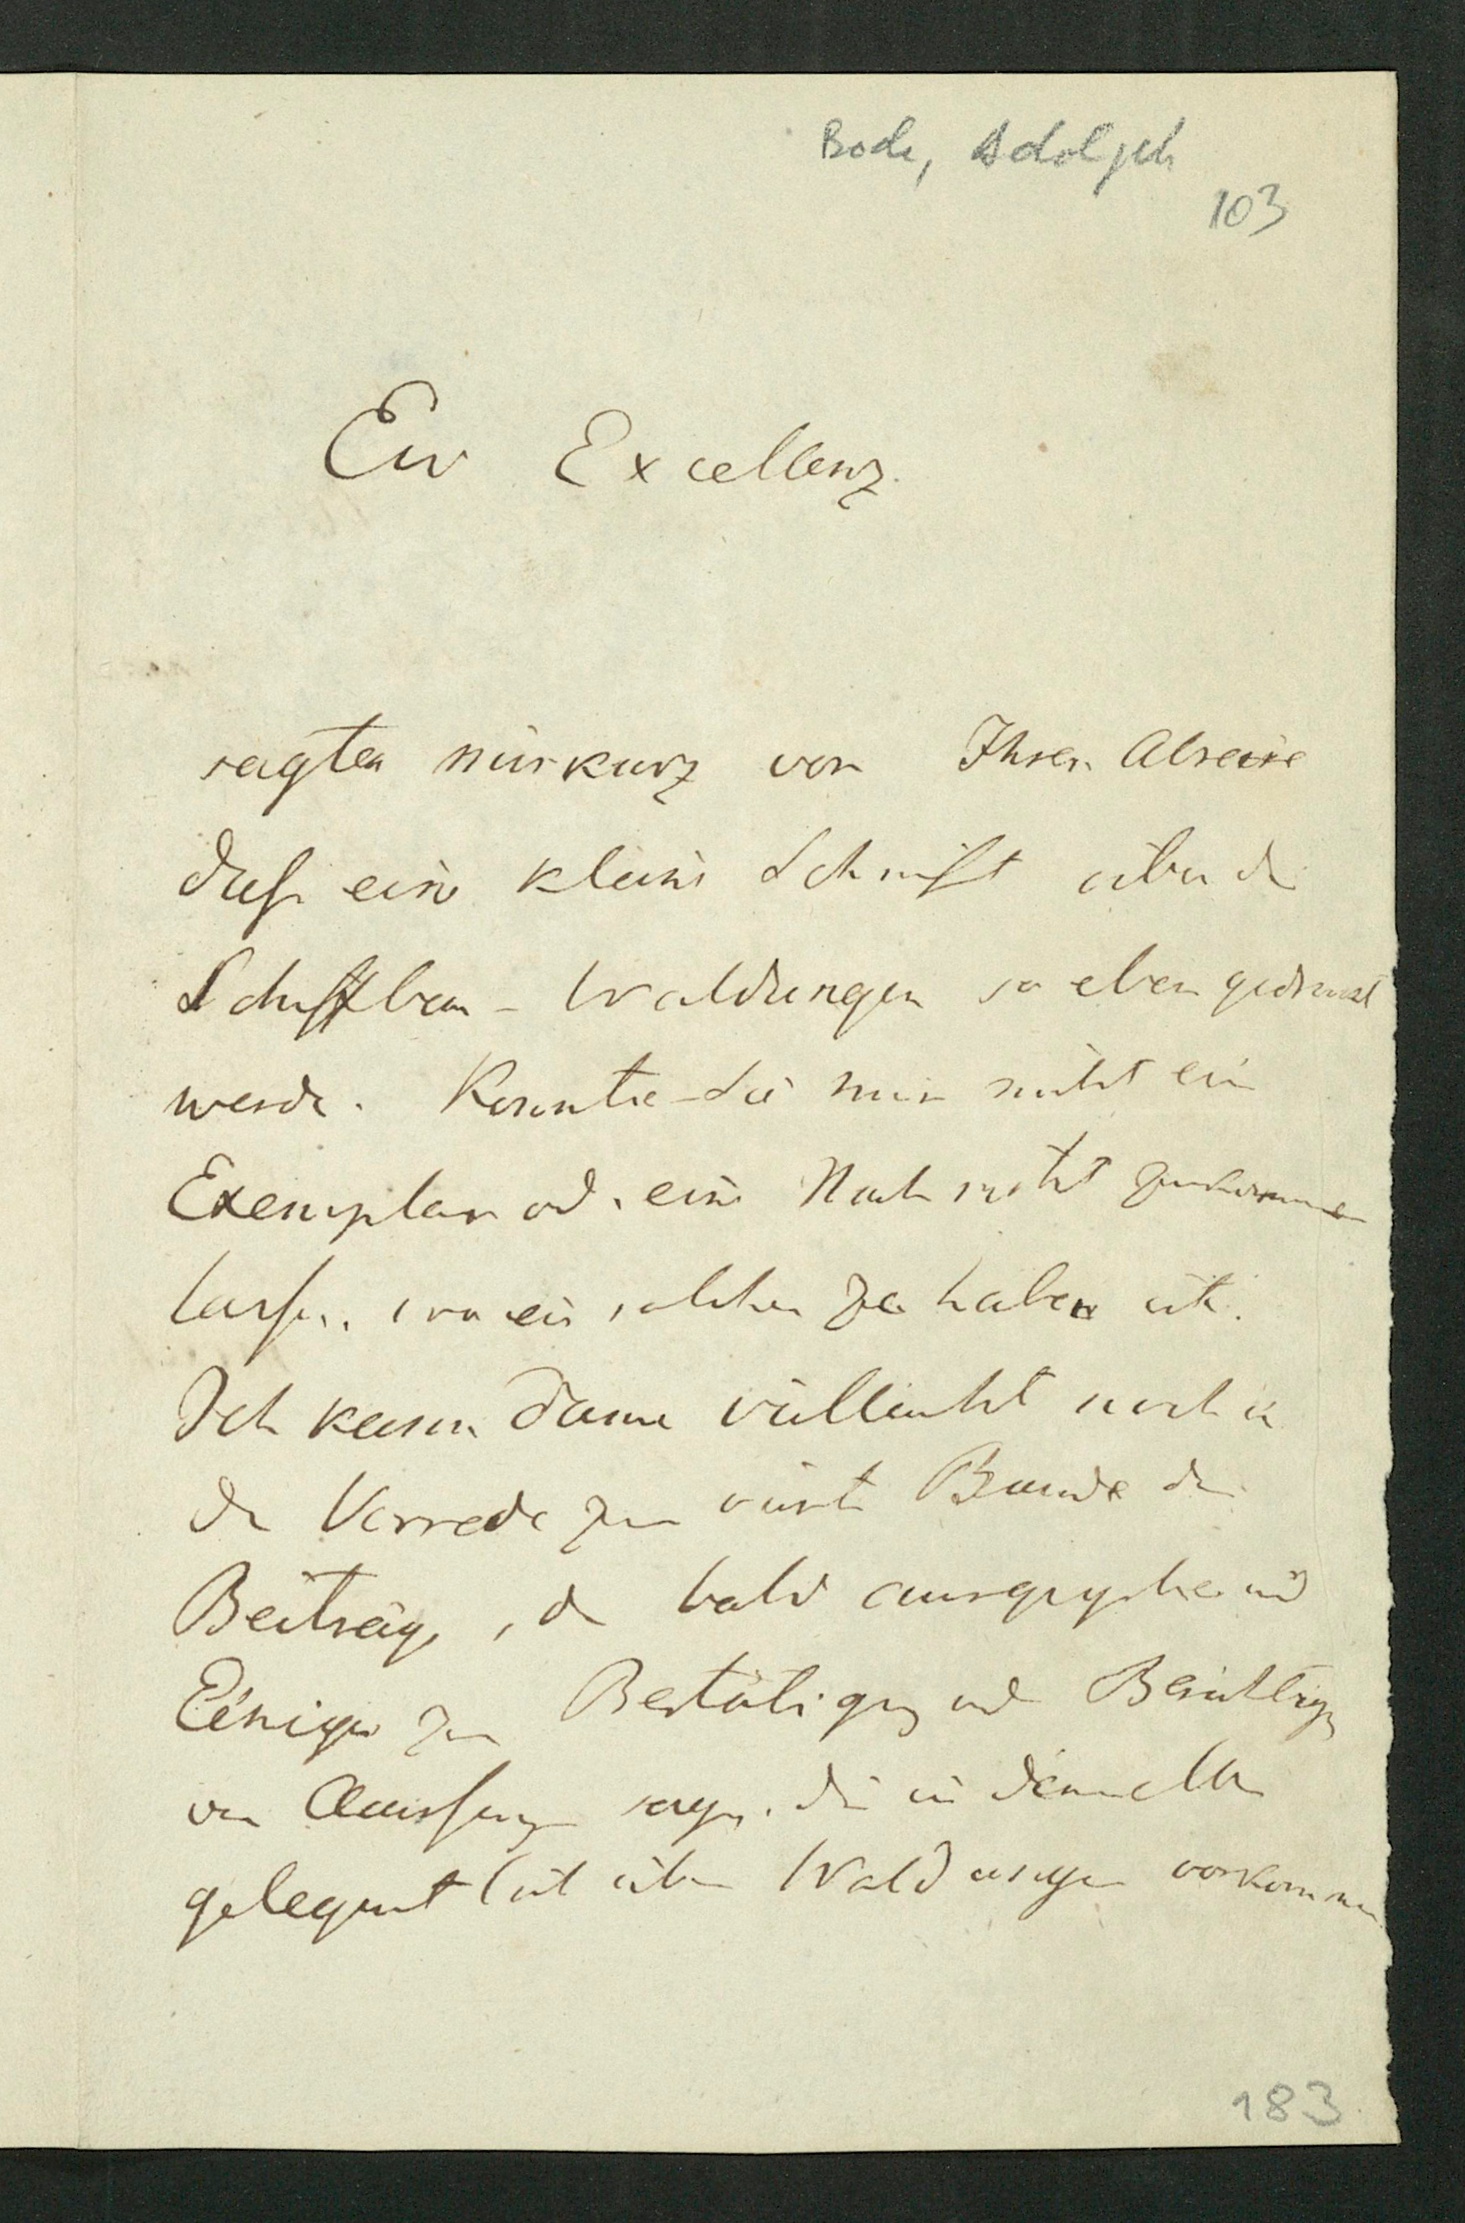 Bode, Adolph
103
Ew Excellenz.
sagten mir kurz vor Ihrer Abreise
daß eine kleine Schrift über die
Schiffbau-Waldungen so eben gedruckt
werde. Konnte Sie mir nicht ein
Exemplar od. eine Nachricht zukommen
lassen, wo ein solches zu haben ist.
Ich kann dann vielleicht noch in
der Vorrede zum vierten Bande der
Beiträge, der bald ausgegeben wird
Einiges zur Bestätigung und Berichtigung
von sagen, die in demselben
gelegentlich über Waldungen vorkommen
183